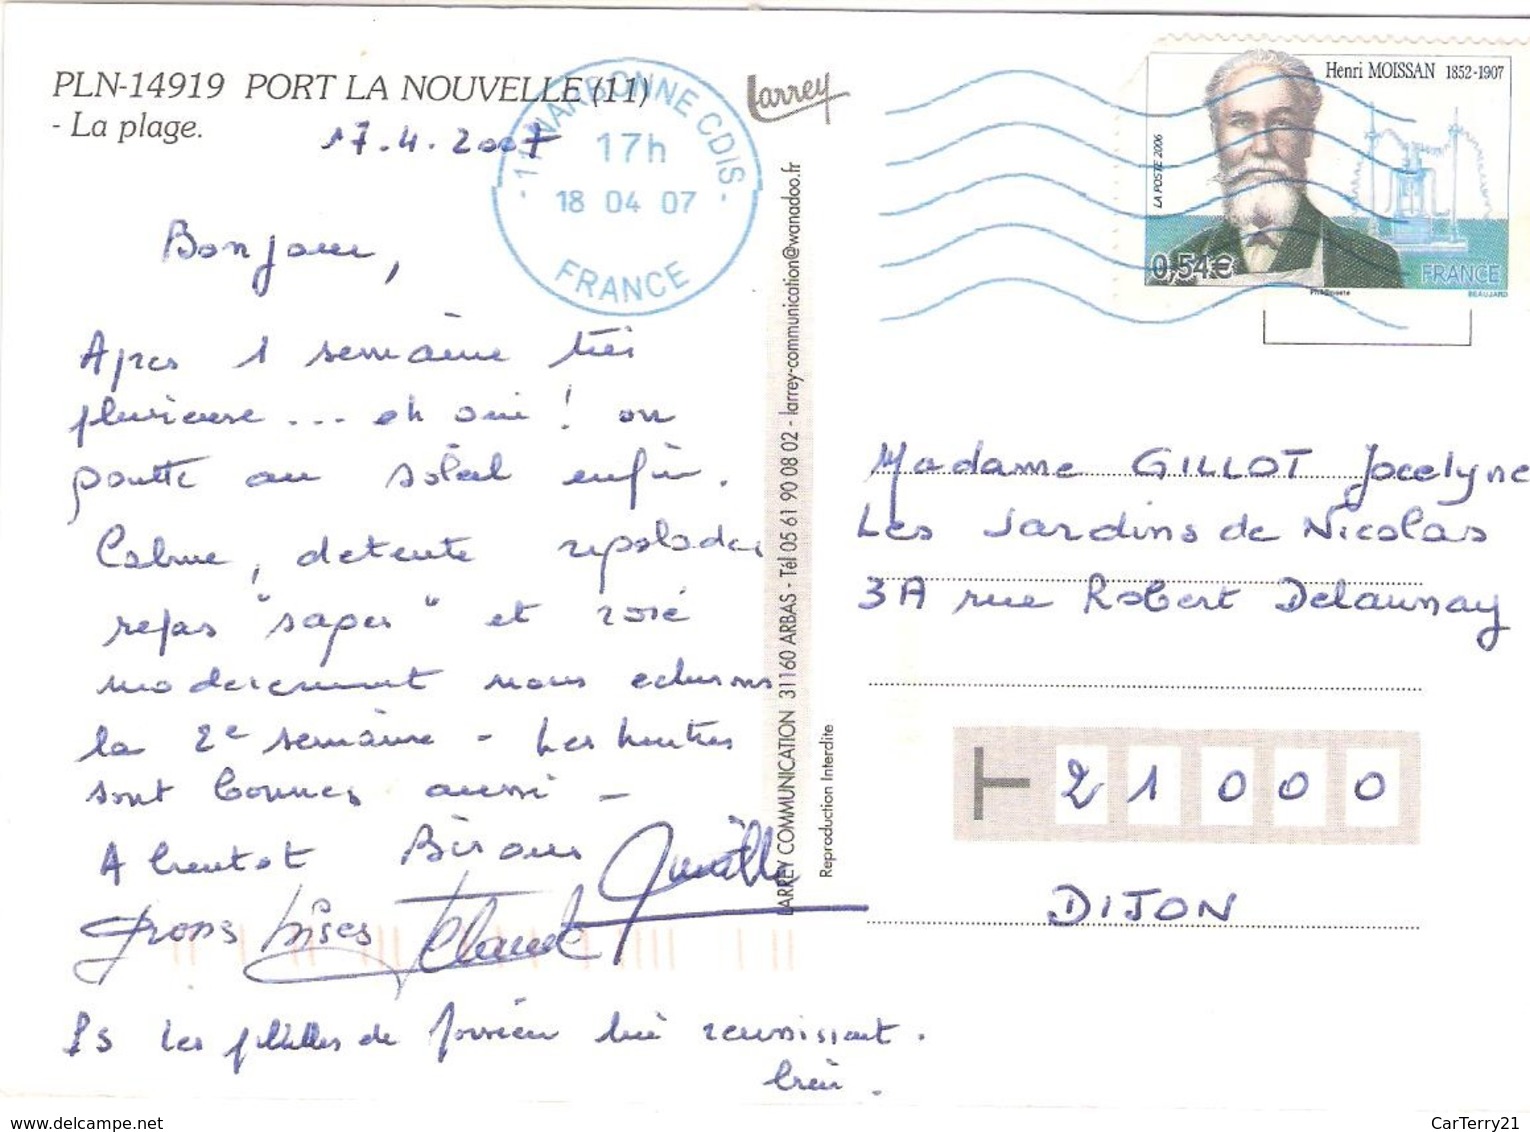 PLN-14919 PORT LA NOUVELLE (11)
- La plage.
17.4.2007
- 11 NARBONNE CDIS -
17h
18 04 07
FRANCE
Larrey
Henri MOISSAN 1852-1907
LA POSTE 2006
0,54€
FRANCE
Phil@poste
BEAUJARD
Bonjour,
Après 1 semaine très
pluvieuse... eh oui ! on
goutte au soleil enfin.
Calme, détente
repas "sages" et rosé
moderement nous
la 2e semaine - Les huitres
sont bonnes aussi -
A bientot Bisous
Gros bises Claude
PS Les pilules de lui reunissent
bien.
LARREY COMMUNICATION 31160 ARBAS - Tél 05 61 90 08 02 - larrey-communication@wanadoo.fr
Reproduction Interdite
Madame GILLOT Jocelyne
Les Jardins de Nicolas
3A rue Robert Delaunay
21000
DIJON
CarTerry21